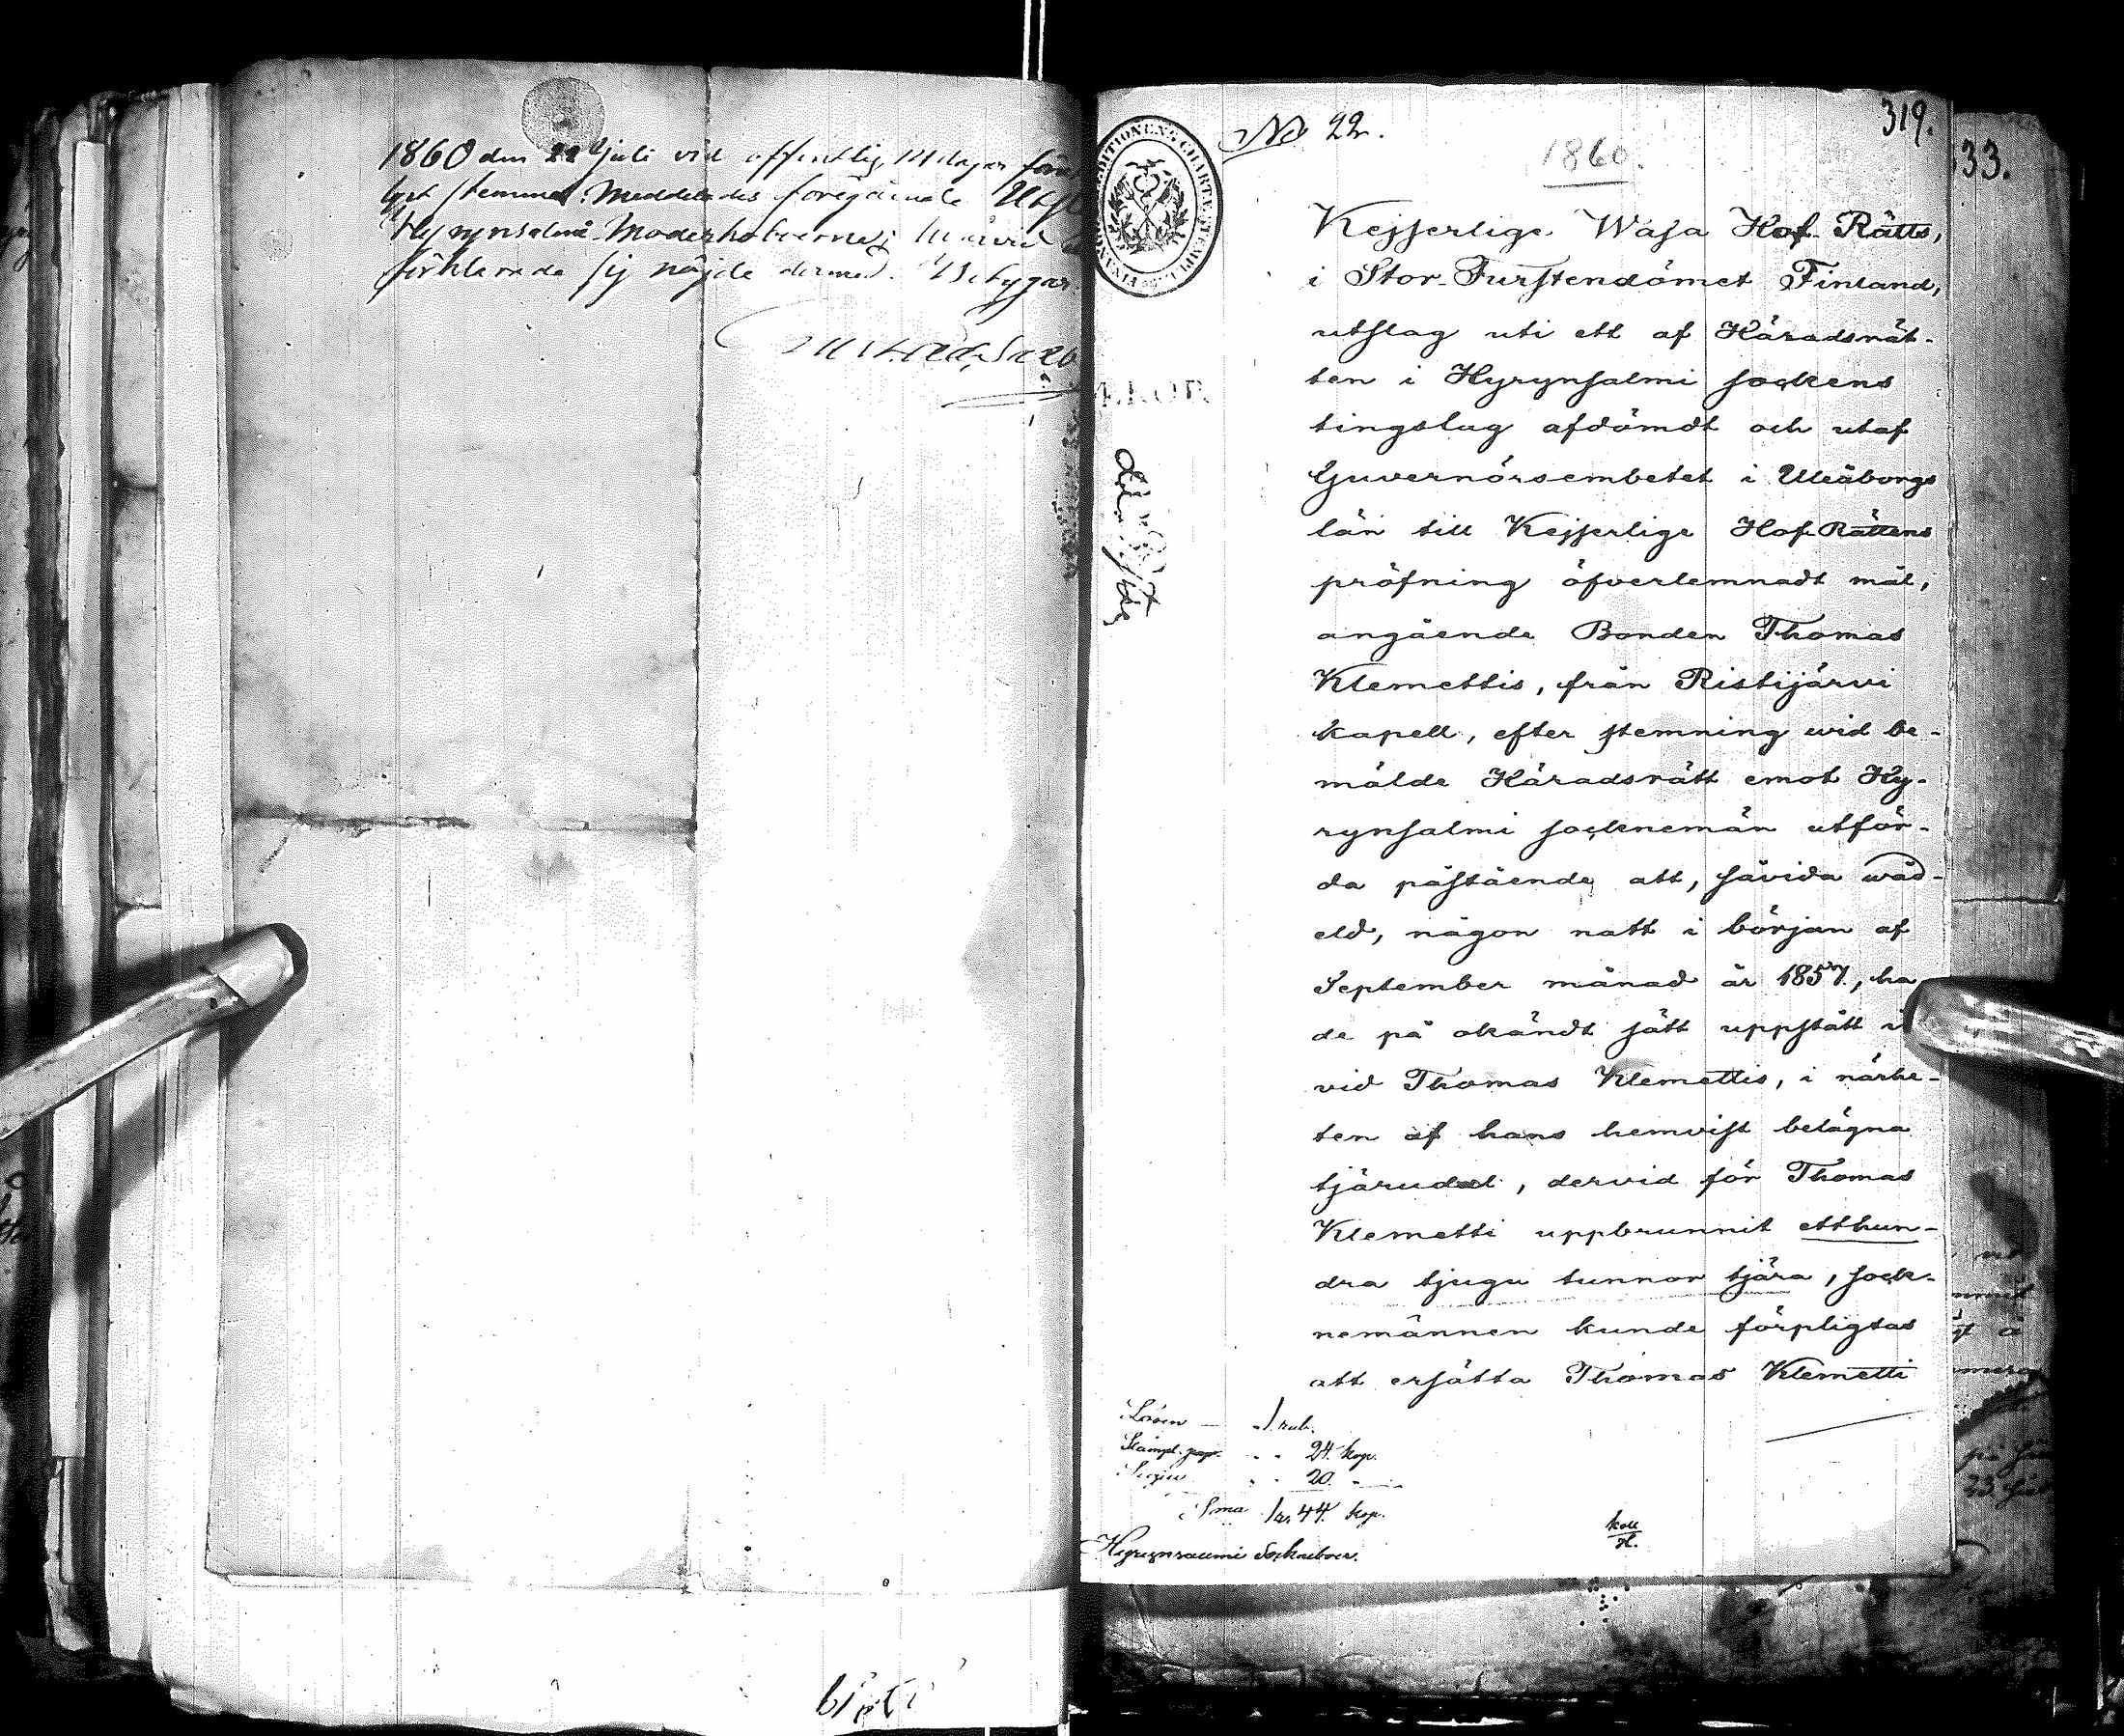 1860 den 22 Juli vid offentlig
stemma Meddelades föregående
Hyrynsalmi Moderkoboerne;
förklarade sig nöjde dermed. Betygar
319.
No 22.
1860.
33.
Kejserlige Wasa Hof-Rätts,
i Stor-Furstendömet Finland,
utslag uti ett af Häradsrät-
ten i Hyrynsalmi sockens
tingslag afdömdt och utaf
Guvernörsembetet i Uleåborgs
län till Kejserlige Hof-Rättens
pröfning öfverlemnadt mål,
angående Bonden Thomas
Klemettis, från Ristijärvi
kapell, efter stemning wid be-
mälde Häradsrätt emot Hy-
rynsalmi socknemän utför-
da påstående att, såvida wåd-
eld, någon natt i början af
September månad år 1857, ha
de på okändt sätt uppstått i
vid Thomas Klemettis, i närhe-
ten af hans hemvist belägna
tjärudal, dervid för Thomas
Klemetti uppbrunnit etthun-
dra tjugu tunnor tjära, sock-
nemännen kunde förpligtas
att ersätta Thomas Klemetti
Lösen — 1 rub.
Stämpl. papr. " " 24 kop.
" " 20. "
Sma 1 r. 44. kop.
Hyrynsalmi Sockneboer.
koll
H.